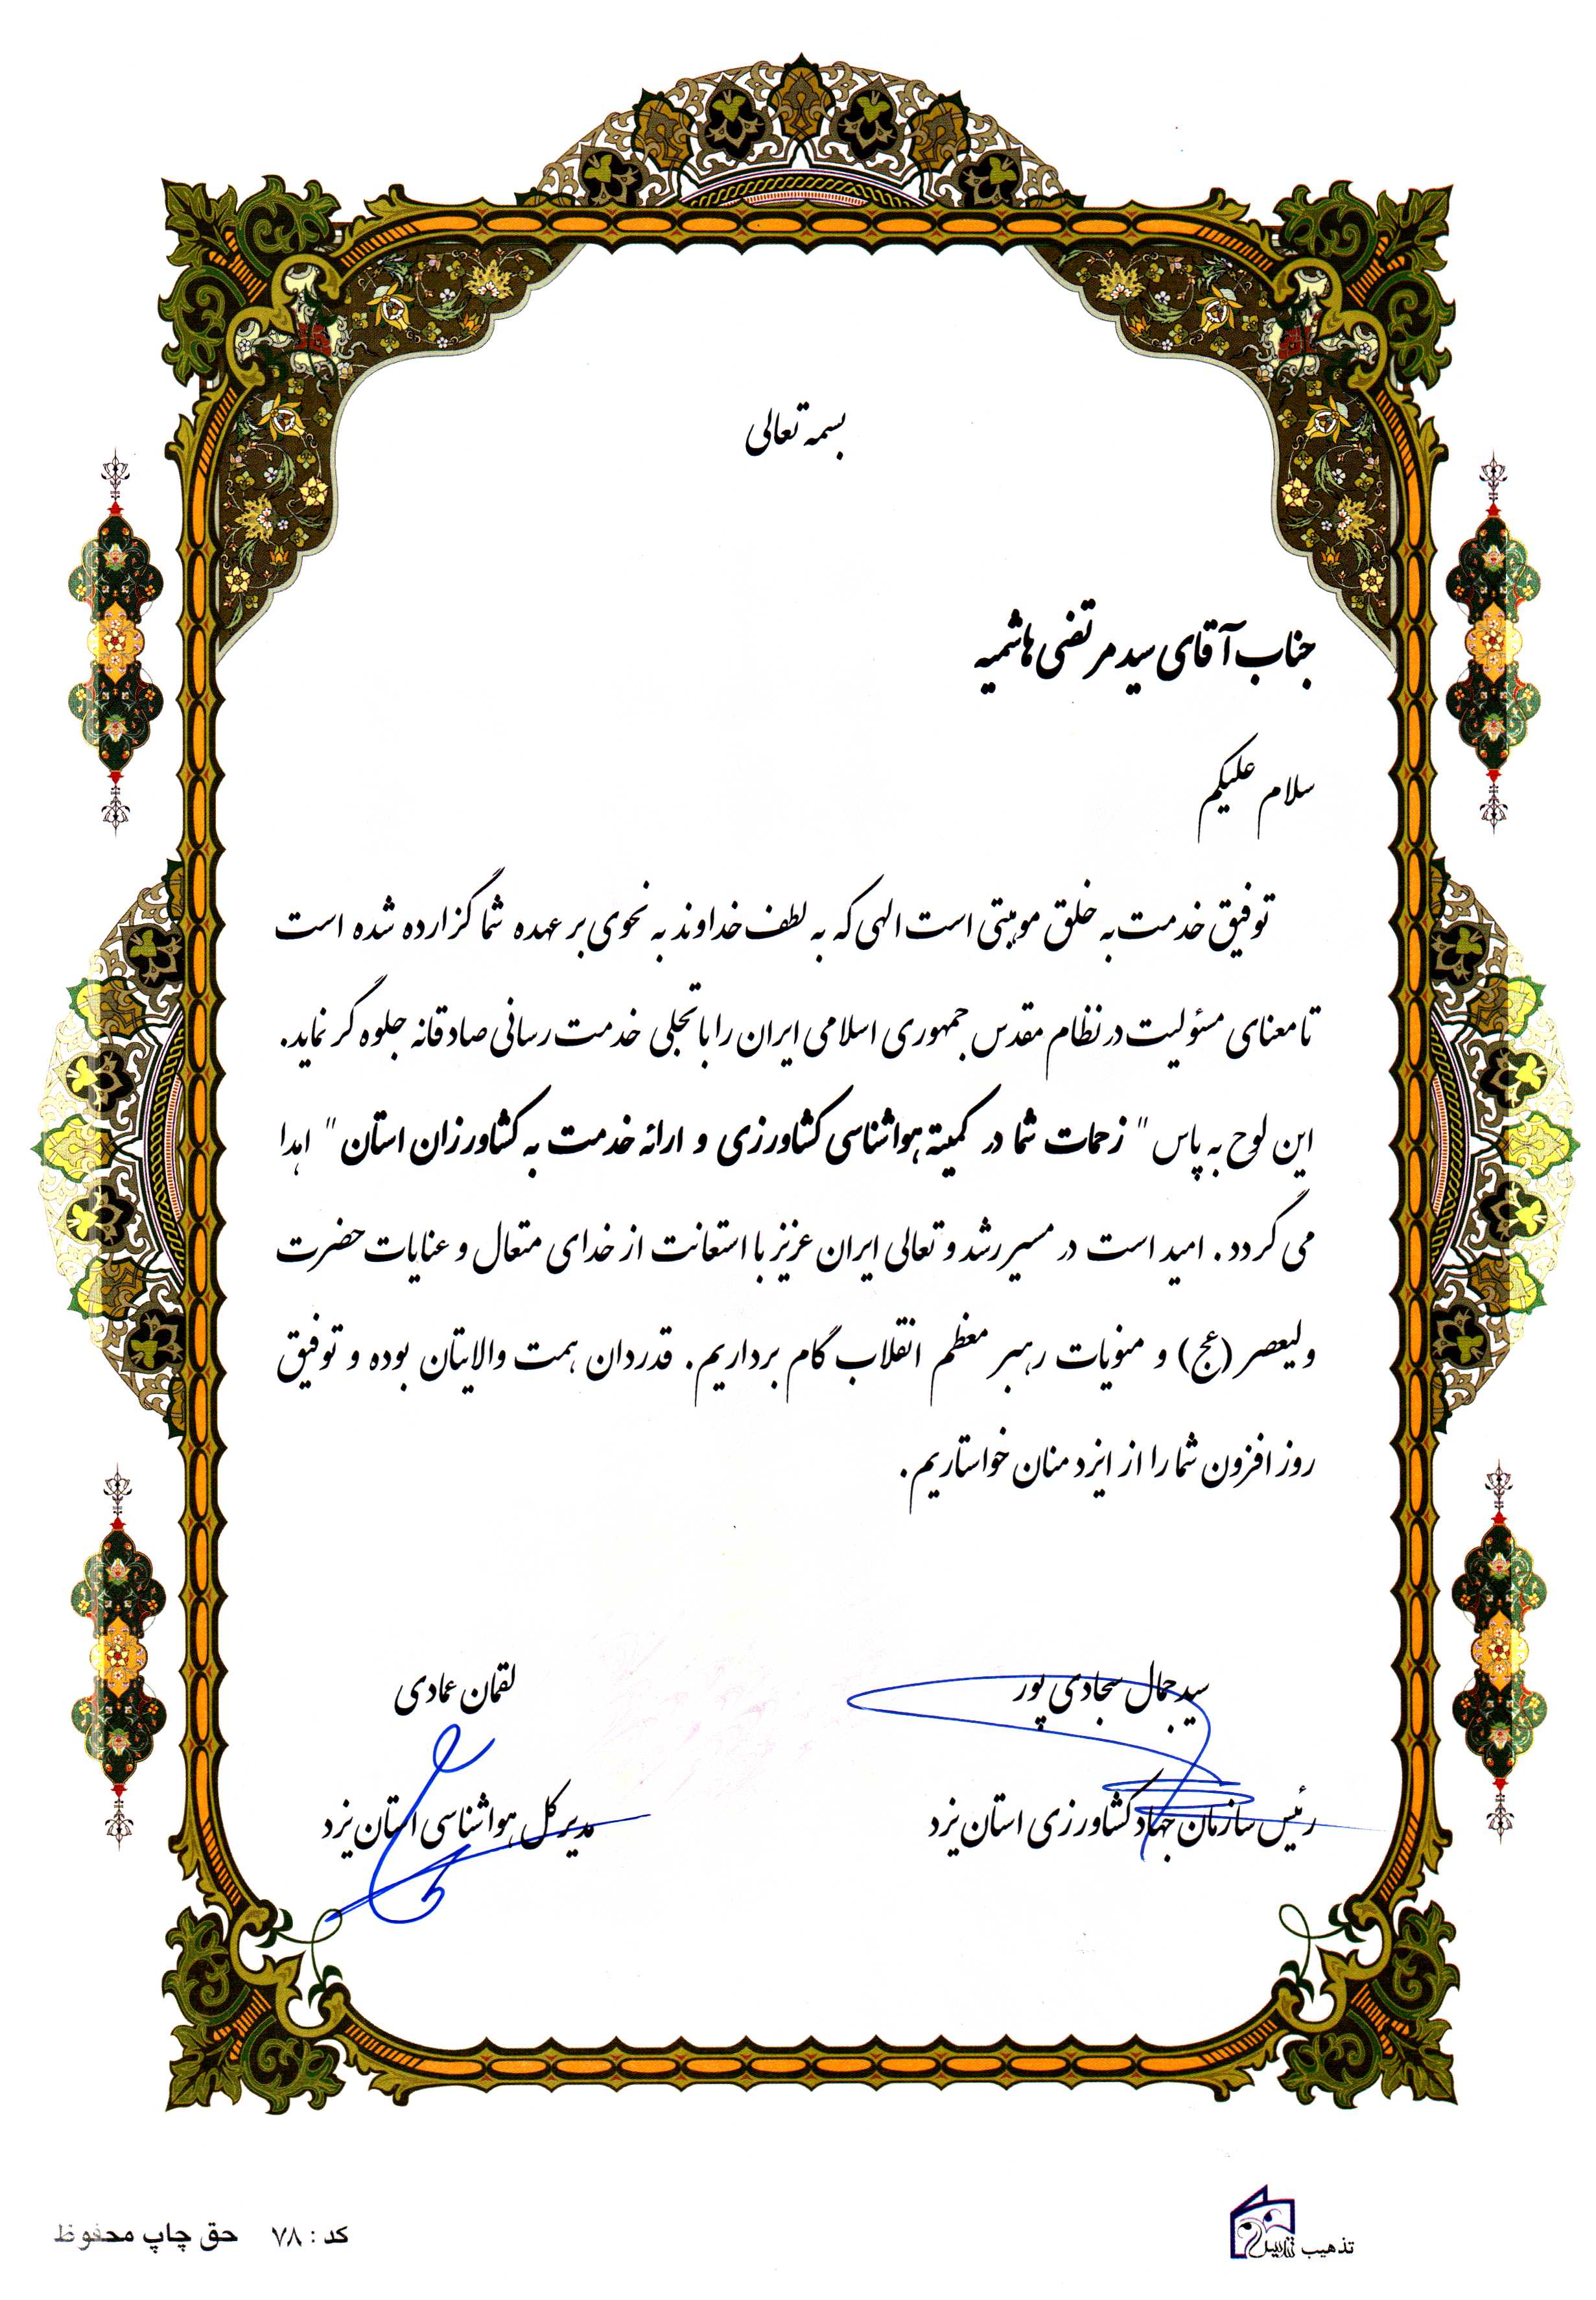 بسمه تعالی
جناب آقای سید مرتضی هاشمیه
سلام علیکم
توفیق خدمت به خلق موهبتی است الهی که به لطف خداوند به نحوی بر عهده شما گزارده شده است
تا معنای مسئولیت در نظام مقدس جمهوری اسلامی ایران را با تجلی خدمت رسانی صادقانه جلوه گر نماید.
این لوح به پاس " زحمات شما در کمیته هواشناسی کشاورزی و ارائه خدمت به کشاورزان استان " اهدا
می گردد . امید است در مسیر رشد و تعالی ایران عزیز با استعانت از خدای متعال و عنایات حضرت
ولیعصر (عج) و منویات رهبر معظم انقلاب گام برداریم. قدردان همت والایتان بوده و توفیق
روز افزون شما را از ایزد منان خواستاریم.
سید جمال سجادی پور
رئیس سازمان جهاد کشاورزی استان یزد
لقمان عمادی
مدیر کل هواشناسی استان یزد
تذهیب
کد : ۷۸ حق چاپ محفوظ